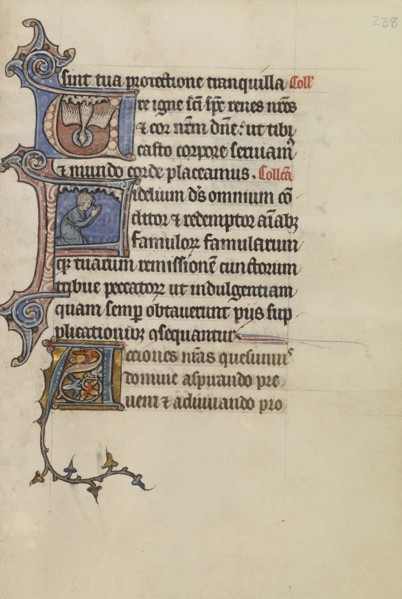 238
sint tua protectione tranquilla. Coll'
Ure igne sc̄i sp̄c renes nr̄os
⁊ cor nr̄m dn̄e: ut tibi
casto corpore seruiam
⁊ mundo corde placeamus. Collc̄a
Fidelium ds̄ omnium cō
ditor ⁊ redemptor aīabꝫ
famuloꝝ famularum
qꝫ tuarum remissionē cunctorum
tribue peccatoꝝ ut indulgentiam
quam semp̄ obtauerunt pijs sup
plicationibꝫ ꝯsequantur
Actiones nr̄as quesumuˢ
domine aspirando pre
ueni ⁊ adiuuando pro